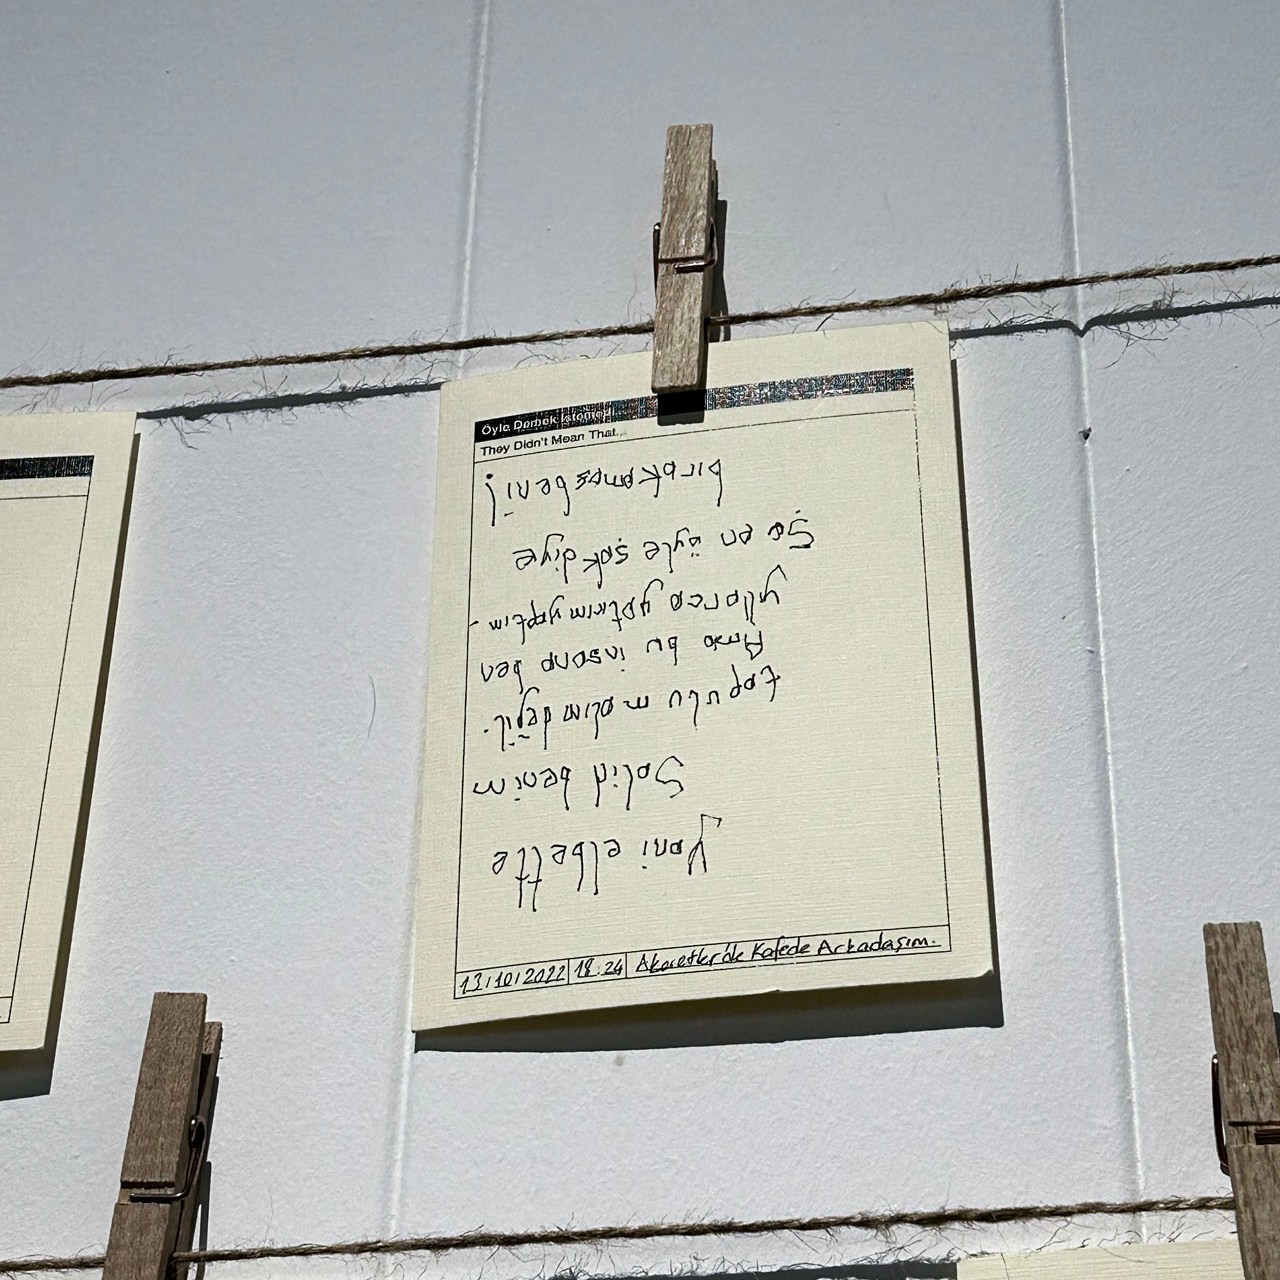 Öyle Demek İstemedi
They Didn't Mean That...
Yani elbette
Salid benim
tapulu malım değil.
Ama bu insana ben
yıllarca yatırım yaptım.
an öyle şak diye
bırakamaz beni!
13/10/2022 18.24 Akaretler'de Kafede Arkadaşım.